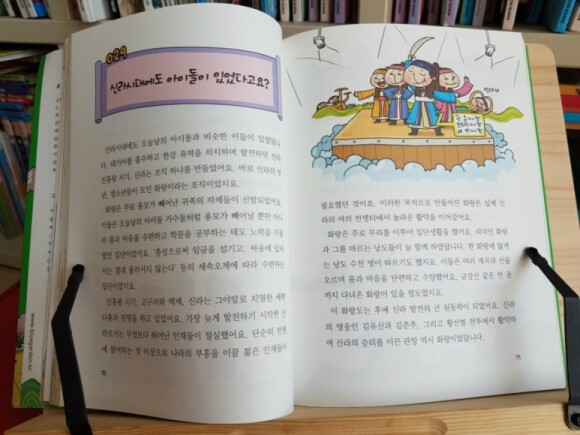 029
신라시대에도 아이돌이 있었다고요?
신라시대에도 오늘날의 아이돌과 비슷한 이들이 있었습니
다. 대가야를 흡수하고 한강 유역을 차지하며 발전하던 진흥
진흥왕 시기, 신라는 조직 하나를 만들었어요. 바로 신라의 청
년, 청소년들이 모인 화랑이라는 조직이었지요.
화랑은 주로 용모가 빼어난 귀족의 자제들이 선발되었어요.
이들은 오늘날의 아이돌 가수들처럼 용모가 빼어날 뿐만 아니
라 몸과 마음을 수련하고 학문을 공부하는 데도 노력을 기울
였던 집단이었어요. '충성으로써 임금을 섬기고, 싸움에 있어
서는 절대 물러서지 않는다' 등의 세속오계에 따라 수련하는
집단이었지요.
진흥왕 시기, 고구려와 백제, 신라는 그야말로 치열한 세력
다툼과 전쟁을 하고 있었어요. 가장 늦게 발전하기 시작한 신
라로서는 무엇보다 뛰어난 인재들이 절실했어요. 단순히 전쟁
에 참여하는 것 이상으로 나라의 부흥을 이끌 젊은 인재들이
70
필요했던 것이죠. 이러한 목적으로 만들어진 화랑은 실제 신
라의 여러 전쟁터에서 놀라운 활약을 이어갔어요.
화랑은 주로 무리를 이루어 집단생활을 했어요. 리더인 화랑
과 그를 따르는 낭도들이 늘 함께 하였답니다. 한 화랑에 많게
는 낭도 수천 명이 따르기도 했지요. 이들은 여러 계곡과 산을
오르며 몸과 마음을 단련하고 수양했어요. 금강산 같은 먼 곳
까지 다녀온 화랑이 있을 정도였지요.
이 화랑도는 후에 신라 발전의 큰 원동력이 되었어요. 신라
의 영웅인 김유신과 김춘추, 그리고 황산벌 전투에서 활약하
여 신라의 승리를 이끈 관창 역시 화랑이었답니다.
71